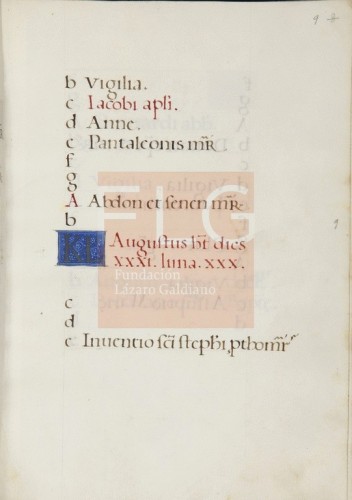 9
b Vigilia.
c Iacobi apłi.
d Anne.
e Pantaleonis mr̃.
f
g
A Abdon et senen mr̃.
b
KL Augustus hт̃ dies
XXXI. luna. XXX.
Fundación
Lázaro Galdiano
c
d
e Inuentio sc̃i stephi, pthomr̃s